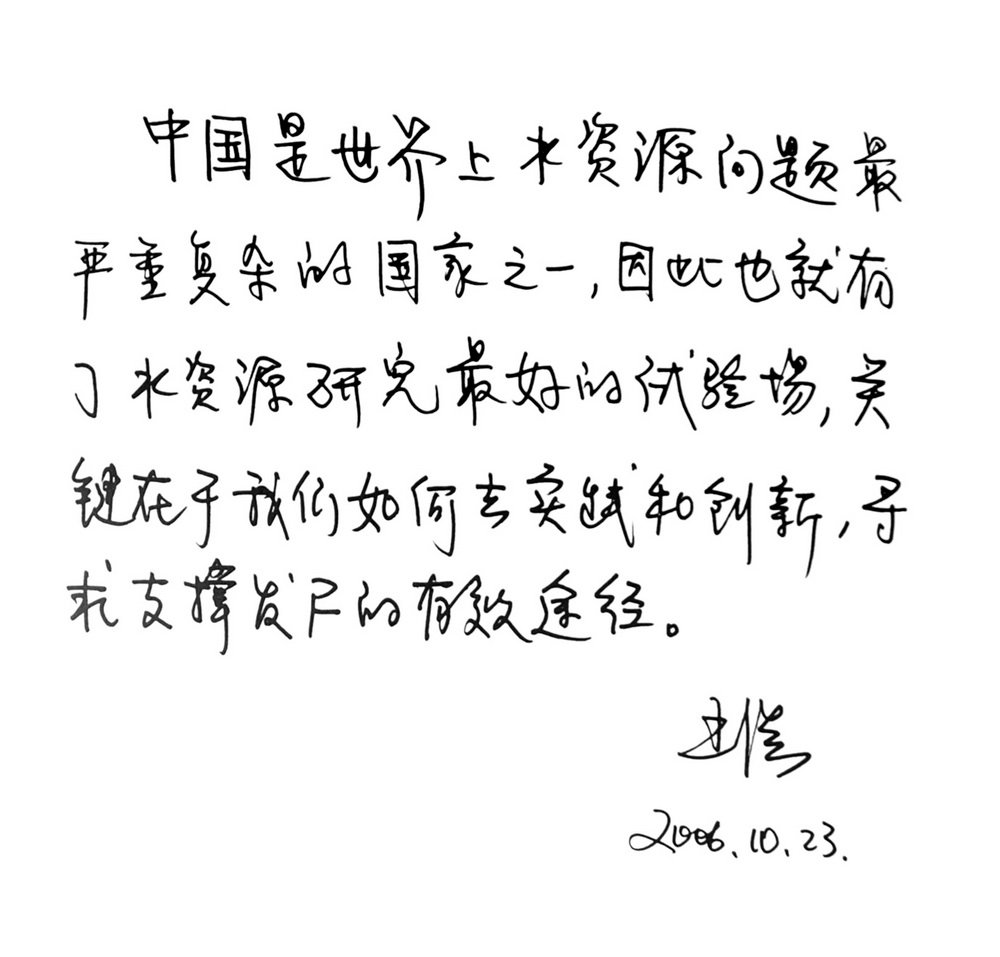 中国是世界上水资源问题最
严重复杂的国家之一,因此也就有
了水资源研究最好的试验场,关
键在于我们如何去实践和创新,寻
求支撑发展的有效途径。
王浩
2006.10.23.